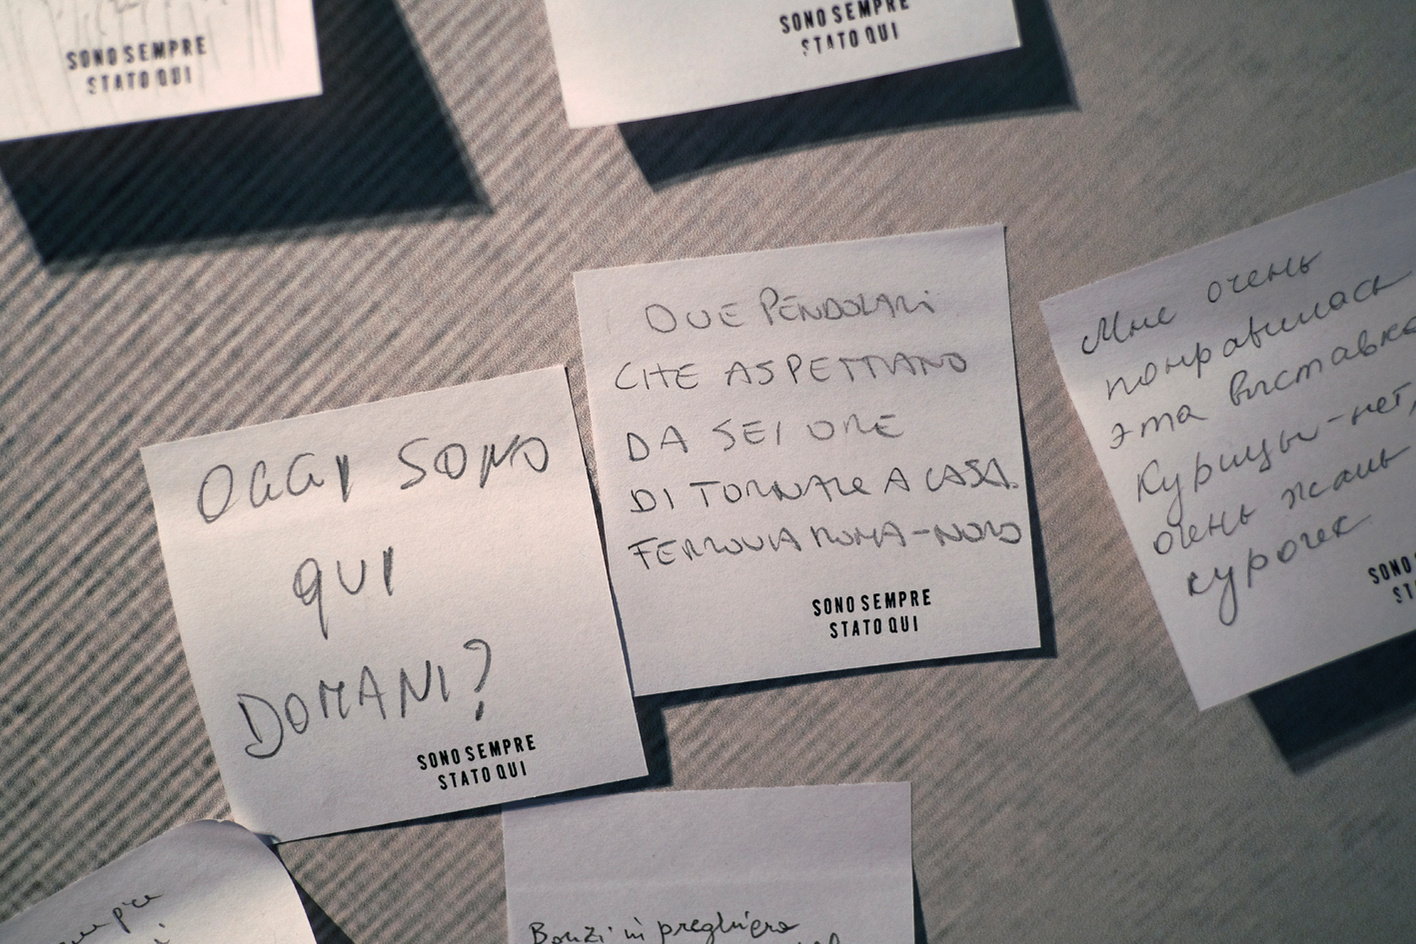 SONO SEMPRE
STATO QUI
SONO SEMPRE
STATO QUI
OGGI SONO
QUI
DOMANI?
SONO SEMPRE
STATO QUI
DUE PENDOLARI
CHE ASPETTANO
DA SEI ORE
DI TORNARE A CASA.
FERROVIA ROMA-NORD
SONO SEMPRE
STATO QUI
Мне очень
понравилась
эта выставка
Курицы-нет,
очень жаль
курочек
SONO
ST
Bonzi in preghiera